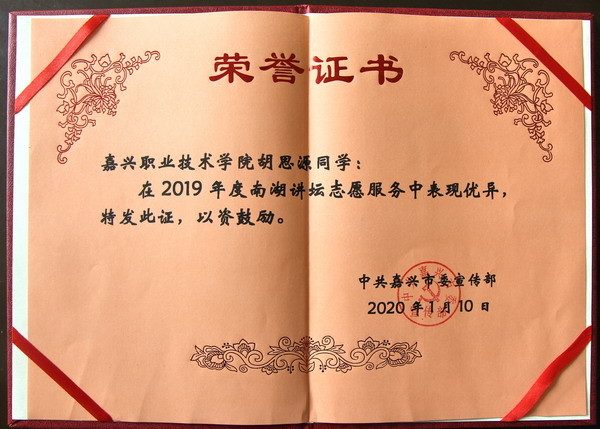 荣誉证书
嘉兴职业技术学院胡思源同学：
在2019年度南湖讲坛志愿服务中表现优异，
特发此证，以资鼓励。
中共嘉兴市委宣传部
2020年1月10日